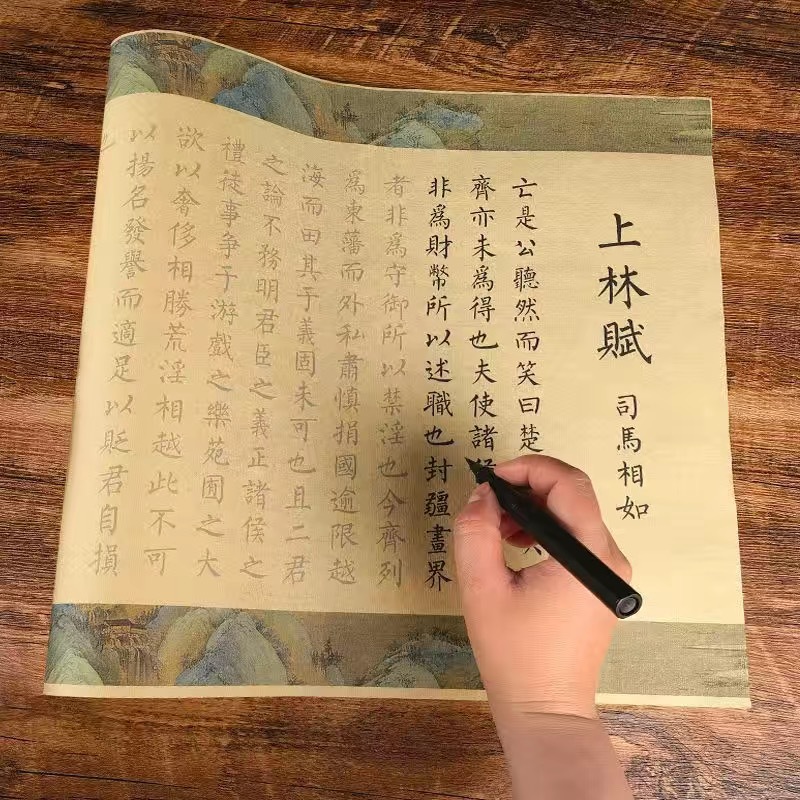 上林賦
司馬相如
亡是公聽然而笑曰楚
齊亦未爲得也夫使諸
非爲財幣所以述職也封疆畫界
者非爲守御所以禁淫也今齊列
爲東藩而外私肅慎捐國逾限越
海而田其于義固未可也且二君
之論不務明君臣之義正諸侯之
禮徒事爭于游戲之樂苑囿之大
欲以奢侈相勝荒淫相越此不可
以揚名發譽而適足以貶君自損
也